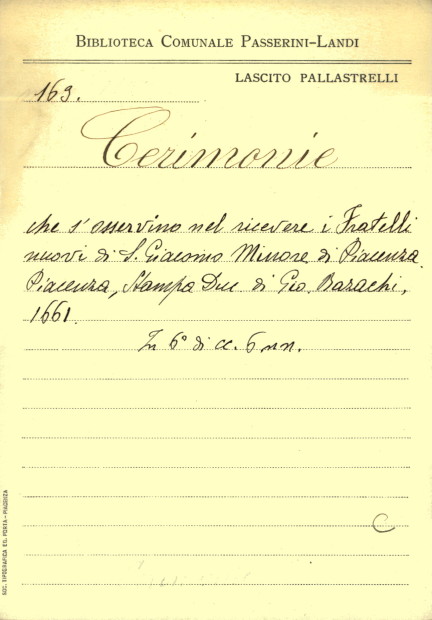 BIBLIOTECA COMUNALE PASSERINI-LANDI
LASCITO PALLASTRELLI
163.
Cerimonie
che s'osservino nel ricevere i Fratelli
nuovi di S. Giacomo Minore di Piacenza.
Piacenza, Stampa Duc. di Gio. Bazachi,
1661.
In 6° di cc. 6 nn.
C
SOC. TIPOGRAFICA ED. PORTA - PIACENZA